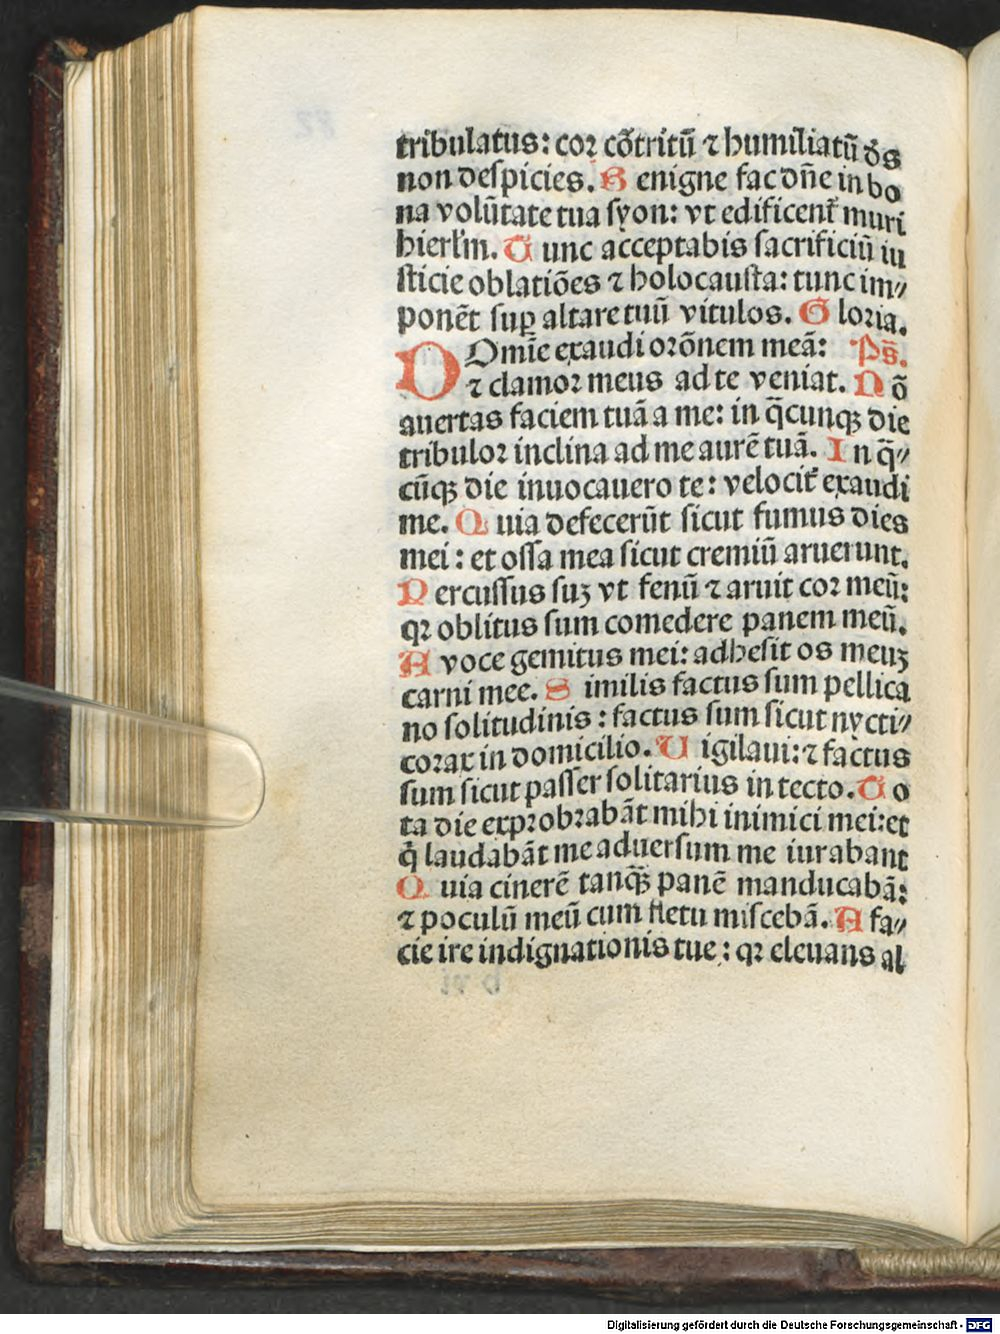 tribulatus: coꝛ cõtritũ ⁊ humiliatũ ds̄
non despicies. B enigne fac dñe in bo
na volũtate tua syon: vt edificent᷑ muri
hierl̃m. T unc acceptabis sacrificiũ iu
sticie oblatiões ⁊ holocausta: tunc im⸗
ponẽt suꝑ altare tuũ vitulos. G loꝛia.
D Omĩe exaudi oꝛõnem meã: Ps̄.
⁊ clamoꝛ meus ad te veniat. N õ
auertas faciem tuã a me: in q̃cunqꝫ die
tribuloꝛ inclina ad me aurẽ tuã. I n q̃⸗
cũqꝫ die inuocauero te: velocit᷑ exaudi
me. Q uia defecerũt sicut fumus dies
mei: et ossa mea sicut cremiũ aruerunt.
P ercussus suꝫ vt fenũ ⁊ aruit coꝛ meũ:
qꝛ oblitus sum comedere panem meũ.
A voce gemitus mei: adhesit os meuꝫ
carni mee. S imilis factus sum pellica
no solitudinis: factus sum sicut nycti⸗
coꝛax in domicilio. V igilaui: ⁊ factus
sum sicut passer solitarius in tecto. T o
ta die expꝛobꝛabãt mihi inimici mei: et
q̇ laudabãt me aduersum me iurabant
Q uia cinerẽ tanqꝫ̃ panẽ manducabã:
⁊ poculũ meũ cum fletu miscebã. A fa⸗
cie ire indignationis tue: qꝛ eleuans al
Digitalisierung gefördert durch die Deutsche Forschungsgemeinschaft - DFG